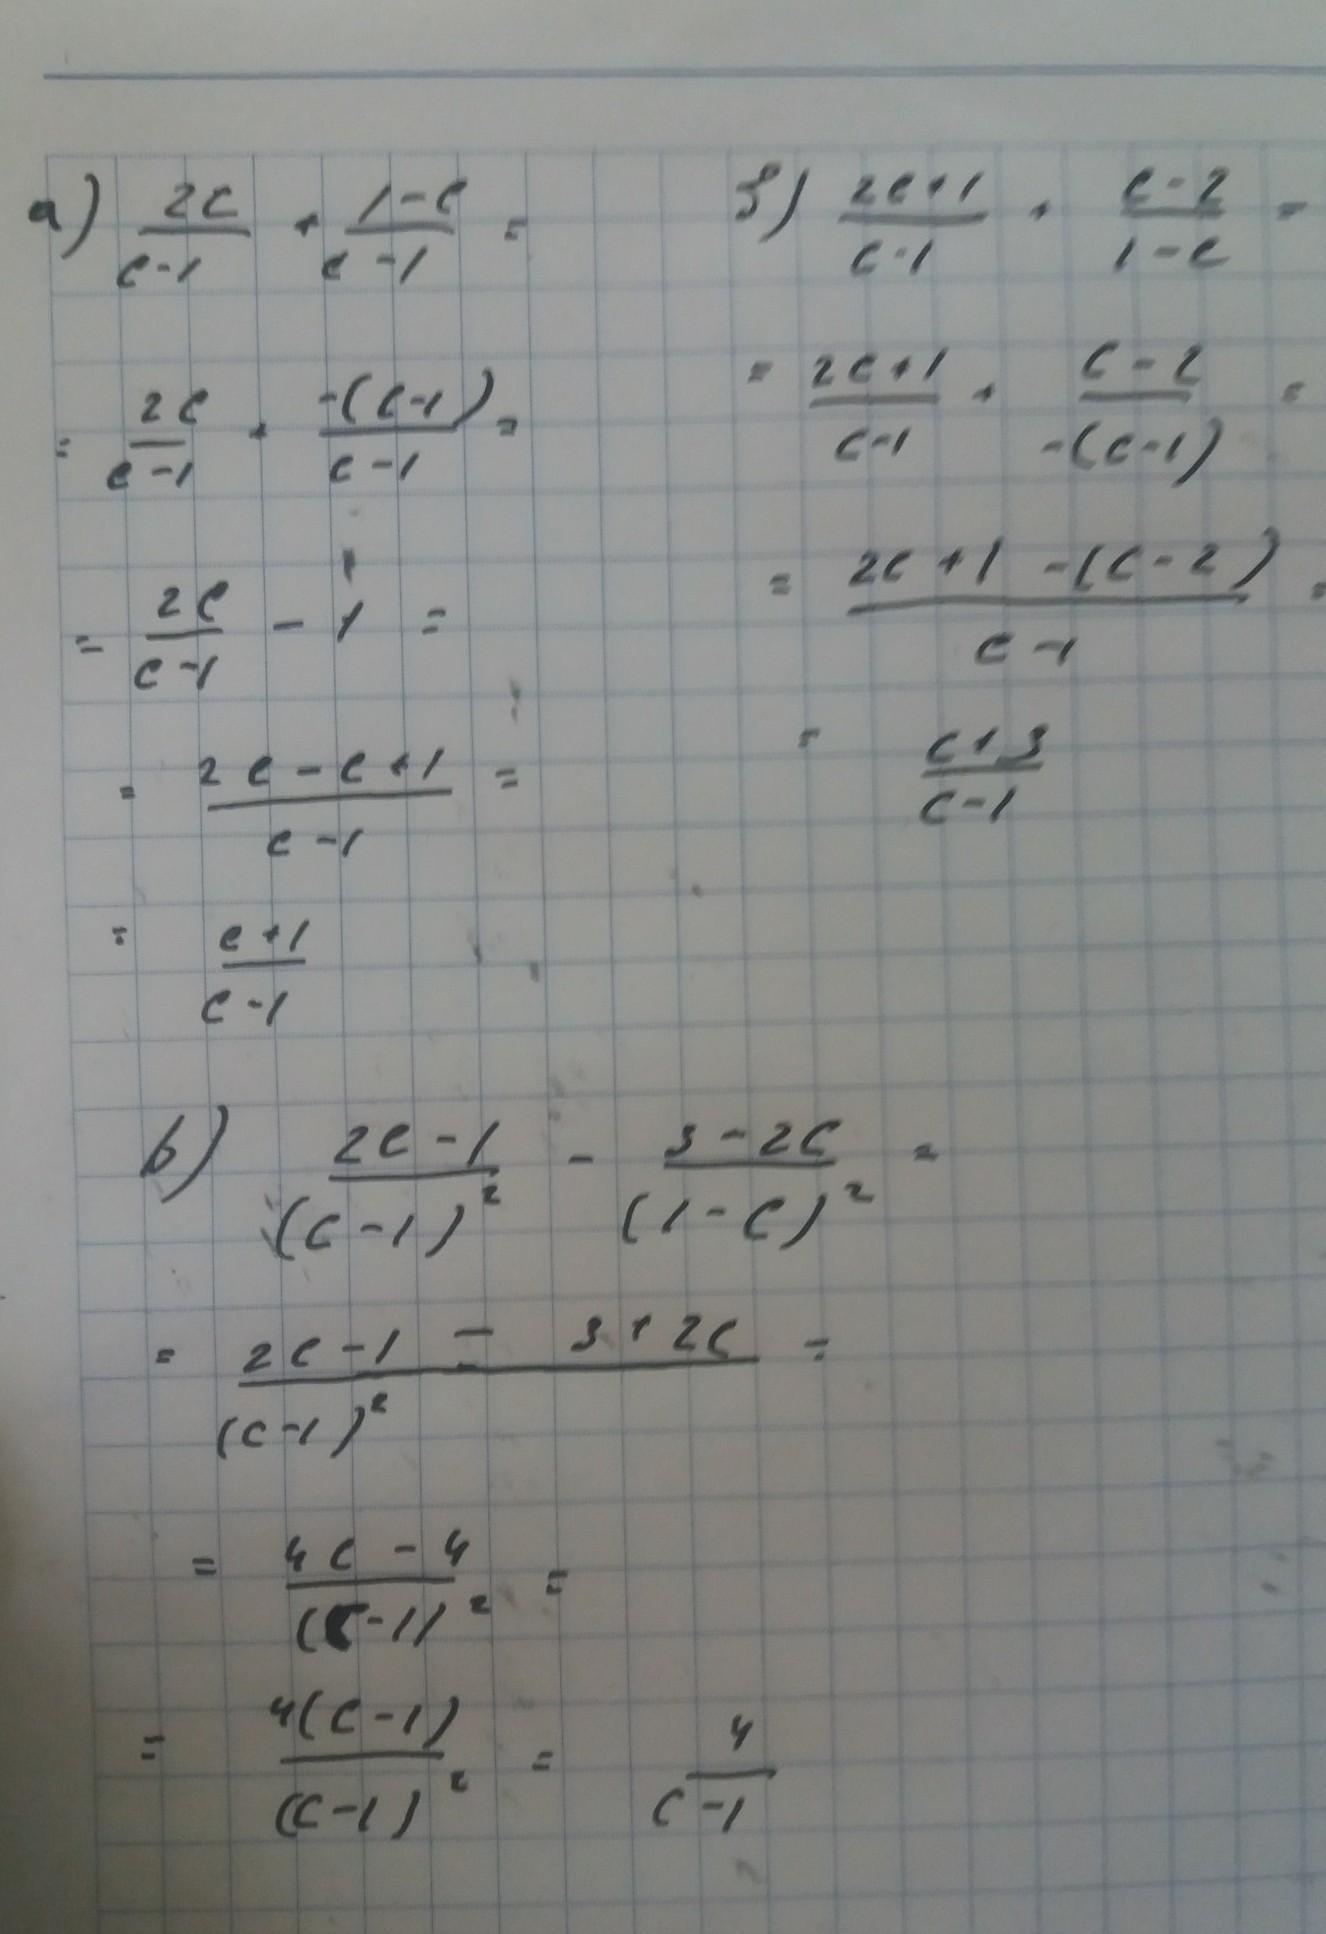 а) 2c/(c-1) + (1-c)/(c-1) =
= 2c/(c-1) + -(c-1)/(c-1) =
= 2c/(c-1) - 1 =
= (2c-c+1)/(c-1) =
= (c+1)/(c-1)
б) (2c+1)/(c-1) + (c-2)/(1-c) =
= (2c+1)/(c-1) + (c-2)/-(c-1) =
= (2c+1-(c-2))/(c-1) =
= (c+3)/(c-1)
в) (2c-1)/(c-1)² - (3-2c)/(1-c)² =
= (2c-1-3+2c)/(c-1)² =
= (4c-4)/(c-1)² =
= 4(c-1)/(c-1)² = 4/(c-1)